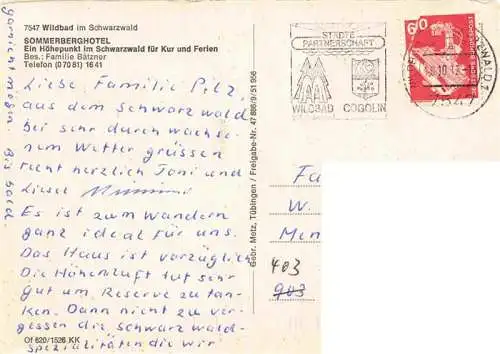 7547 Wildbad im Schwarzwald
SOMMERBERGHOTEL
Ein Höhepunkt im Schwarzwald für Kur und Ferien
Bes.: Familie Bätzner
Telefon (07081) 1641
Liebe Familie Pilz,
aus dem Schwarzwald
bei sehr durchwachse-
nem Wetter grüssen
recht herzlich Toni und
Liesel
Es ist zum Wandern
ganz ideal für uns.
Das Haus ist vorzüglich
Die Höhenluft tut sehr
gut um Reserve zu tan-
ken. Dann nicht zu ver-
gessen die Schwarzwald-
spezialitäten die wir
Bis bald.
Of 620/1526 KK
Gebr. Metz, Tübingen / Freigabe-Nr. 47 886/9/51 956
STÄDTE
PARTNERSCHAFT
WILDBAD COGOLIN
60
DEUTSCHE BUNDESPOST
7547
Fa
W.
Men
403
903